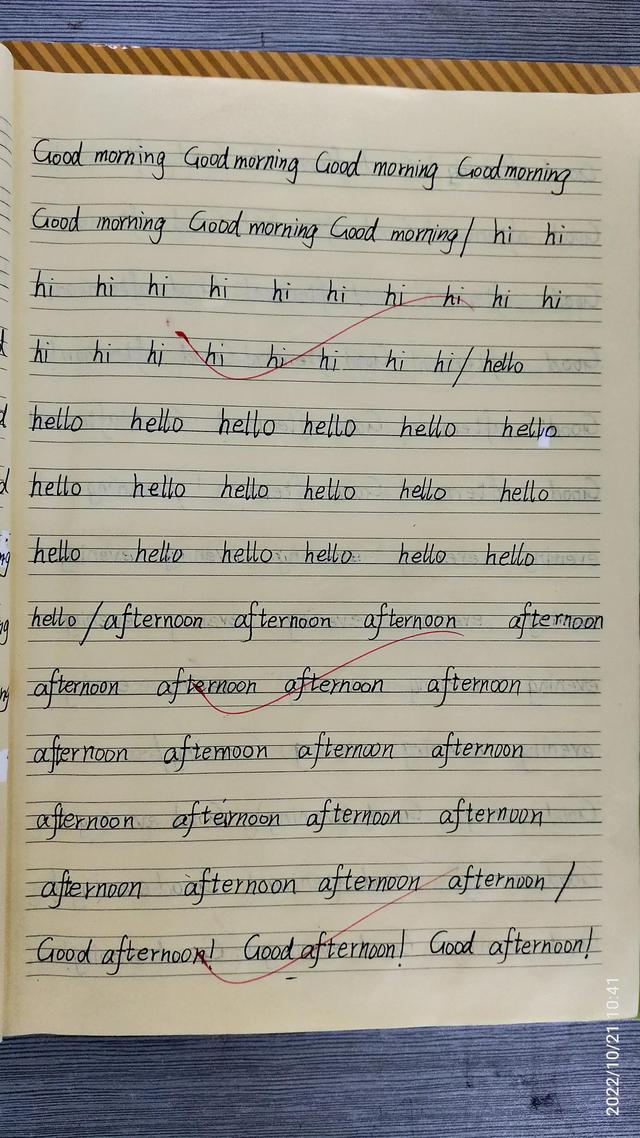 Good morning Good morning Good morning Good morning
Good morning Good morning Good morning / hi hi
hi hi hi hi hi hi hi hi hi hi
hi hi hi hi hi hi hi hi / hello
hello hello hello hello hello hello
hello hello hello hello hello hello
hello hello hello hello hello hello
hello / afternoon afternoon afternoon afternoon
afternoon afternoon afternoon afternoon
afternoon afternoon afternoon afternoon
afternoon afternoon afternoon afternoon
afternoon afternoon afternoon afternoon /
Good afternoon! Good afternoon! Good afternoon!
2022/10/21 10:41